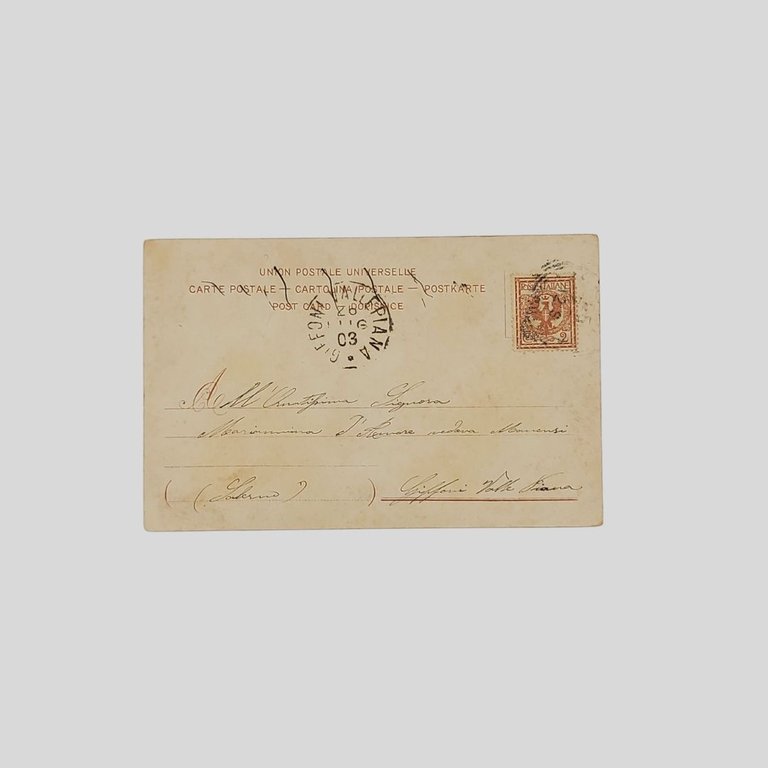 UNION POSTALE UNIVERSELLE
CARTE POSTALE — CARTOLINA POSTALE — POSTKARTE
POST CARD — DOPISNICE
GIFFONI VALLE PIANA
26
03
POSTE ITALIANE
2
All' Ornatissima Signora
Mariannina D'Amore vedova
(Salerno) Giffoni Valle Piana